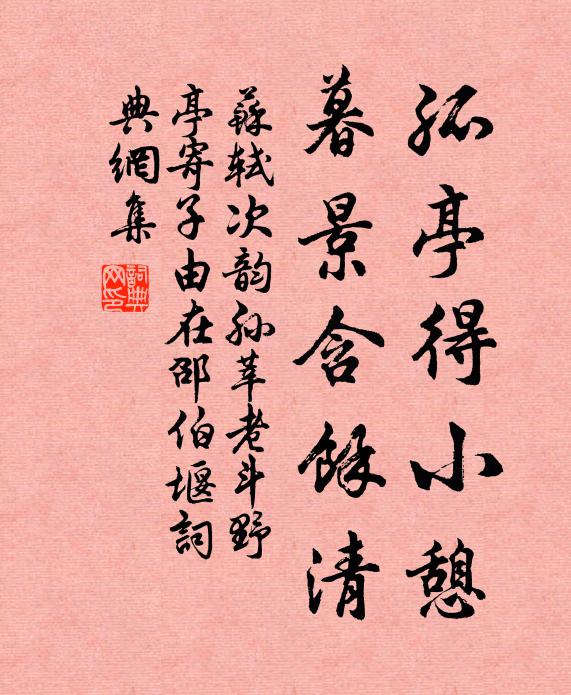 孤亭得小憩
暮景含餘清
蘇軾次韵孫莘老斗野
亭寄子由在邵伯堰詞
典網集
詞典
网印